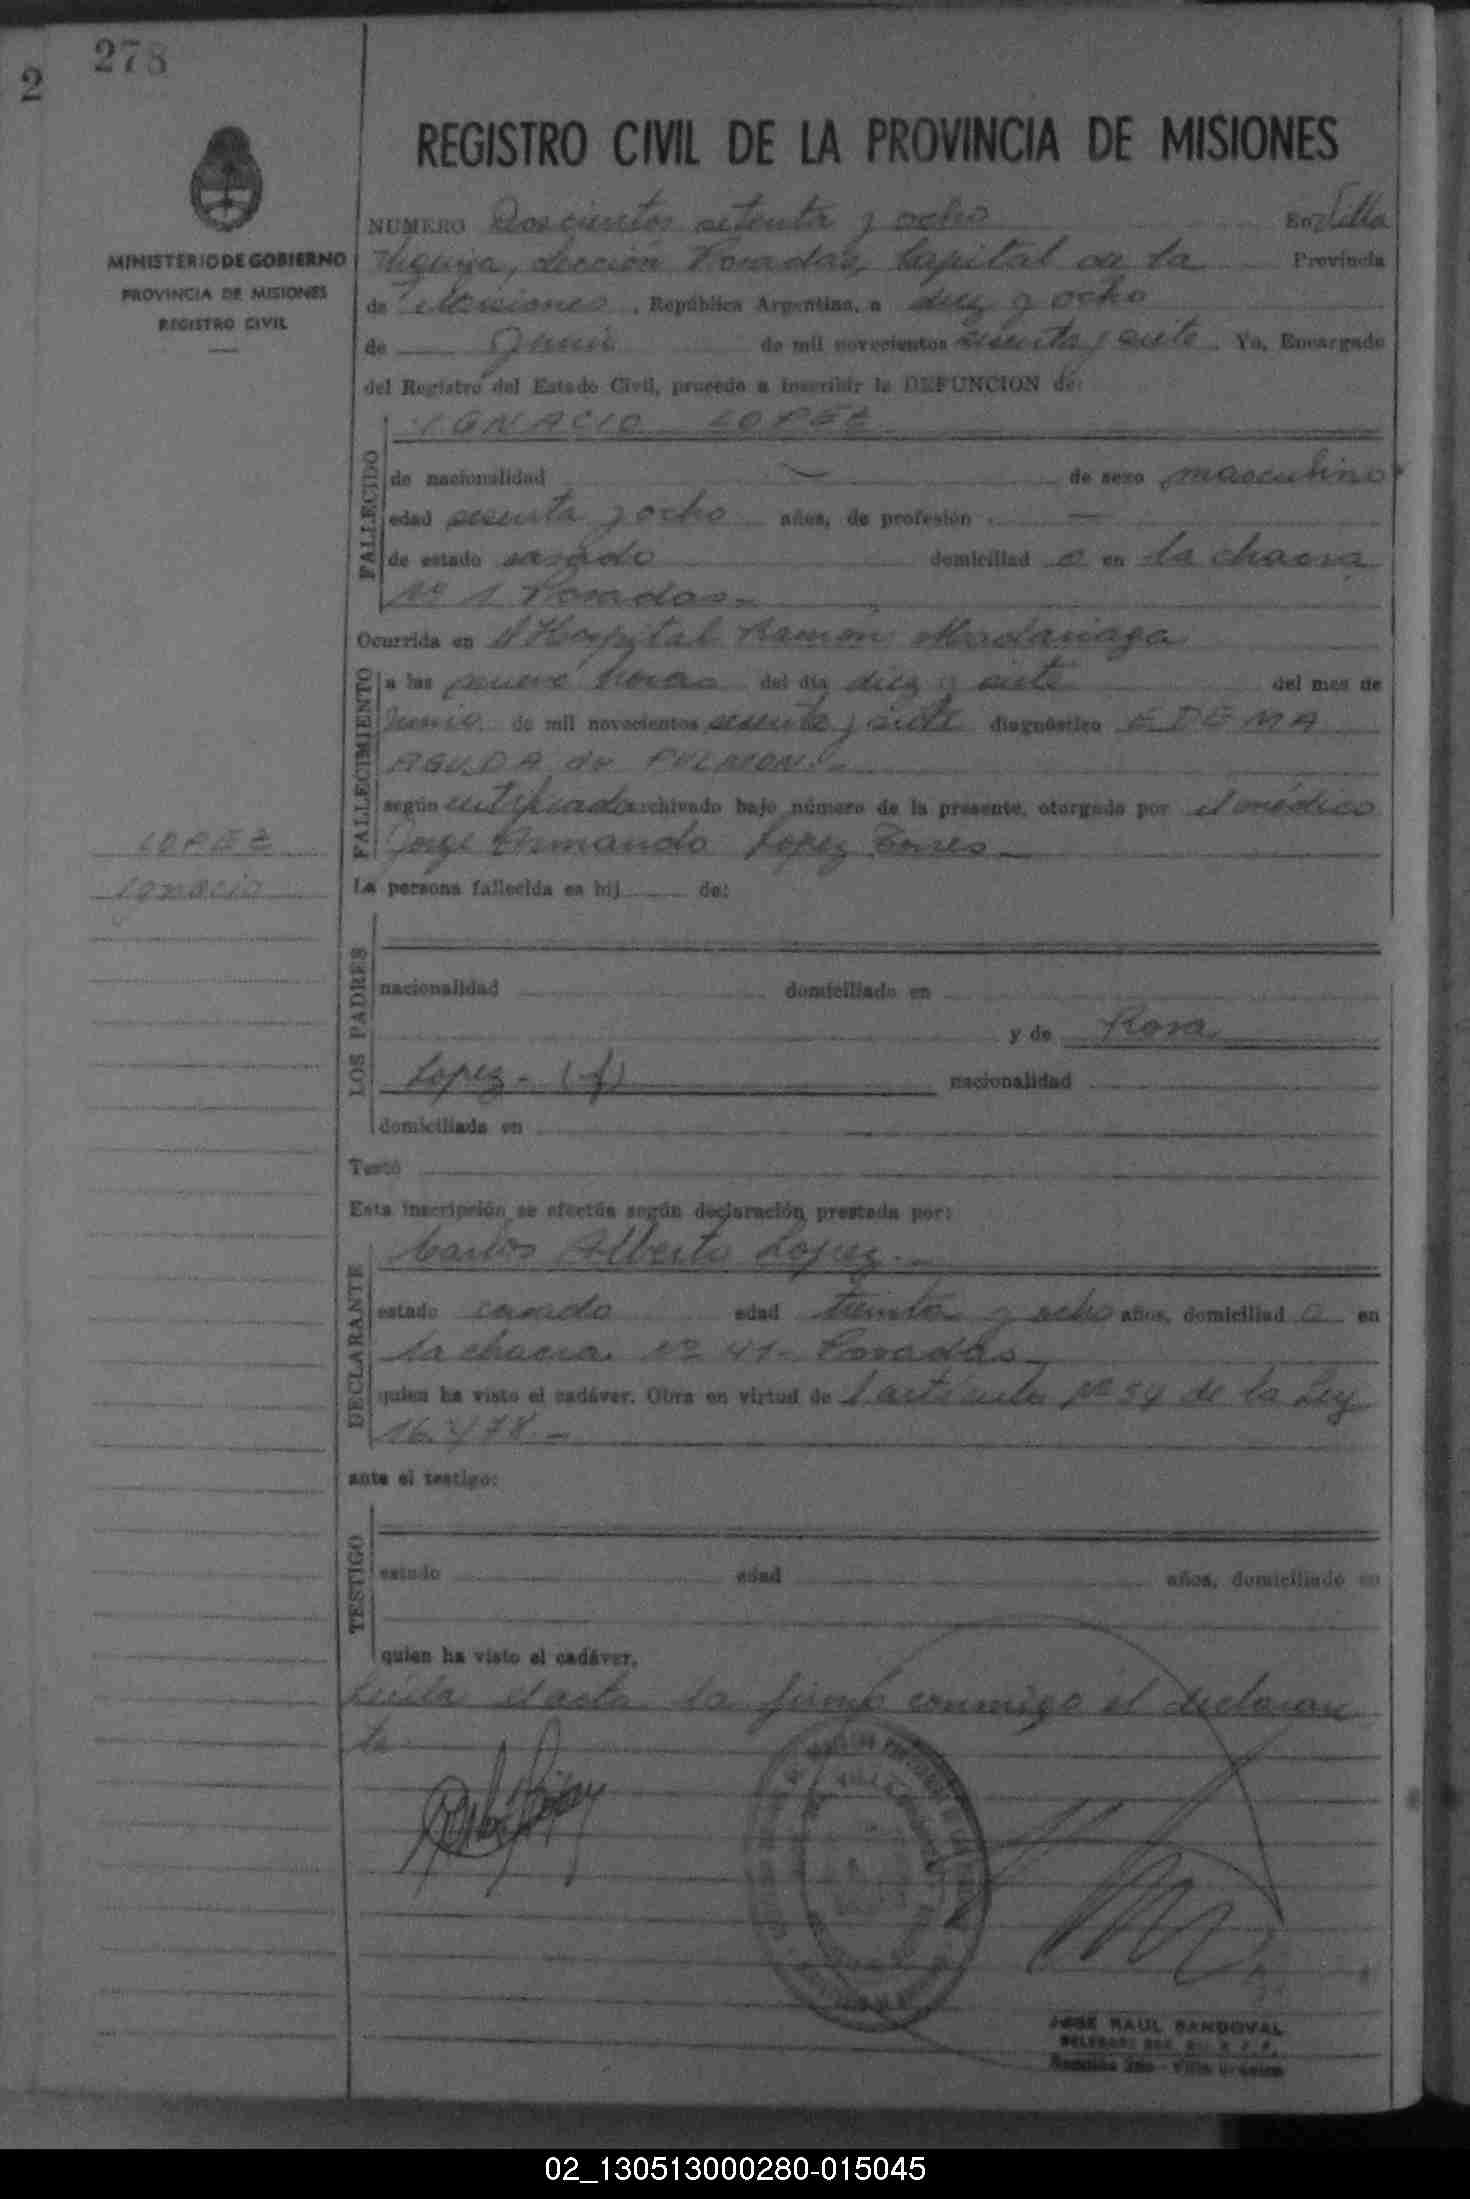 2
278
REGISTRO CIVIL DE LA PROVINCIA DE MISIONES
MINISTERIO DE GOBIERNO
PROVINCIA DE MISIONES
REGISTRO CIVIL
NUMERO Doscientos setenta y ocho En Villa
Urquiza, Sección Posadas, Capital de la Provincia
de Misiones, República Argentina, a diez y ocho
de Junio de mil novecientos sesenta y siete. Yo, Encargado
del Registro del Estado Civil, procedo a inscribir la DEFUNCION de:
IGNACIO LOPEZ
FALLECIDO
de nacionalidad — de sexo masculino
edad sesenta y ocho años, de profesión —
de estado casado domiciliad o en la chacra
Nº 1 Posadas.-
Ocurrida en el Hospital Ramon Madariaga
FALLECIMIENTO
a las nueve horas del día diez y siete del mes de
Junio de mil novecientos sesenta y siete diagnóstico EDEMA
AGUDA de PULMON.-
según certificado archivado bajo número de la presente, otorgado por el médico
Jorge Armando Lopez Torres.-
LOPEZ
Ignacio
La persona fallecida es hij de:
LOS PADRES
nacionalidad domiciliado en
y de Rosa
Lopez.- (f) nacionalidad
domiciliada en
Testó
Esta inscripción se efectúa según declaración prestada por:
DECLARANTE
Carlos Alberto Lopez.-
estado casado edad treinta y ocho años, domiciliad o en
la chacra Nº 41- Posadas.-
quien ha visto el cadáver. Obra en virtud de l artículo Nº 54 de la Ley
16.478.-
ante el testigo:
TESTIGO
estado edad años, domiciliado en
quien ha visto el cadáver.
Leída el acta la firma conmigo el declaran
te
JOSE RAUL SANDOVAL
02_130513000280-015045